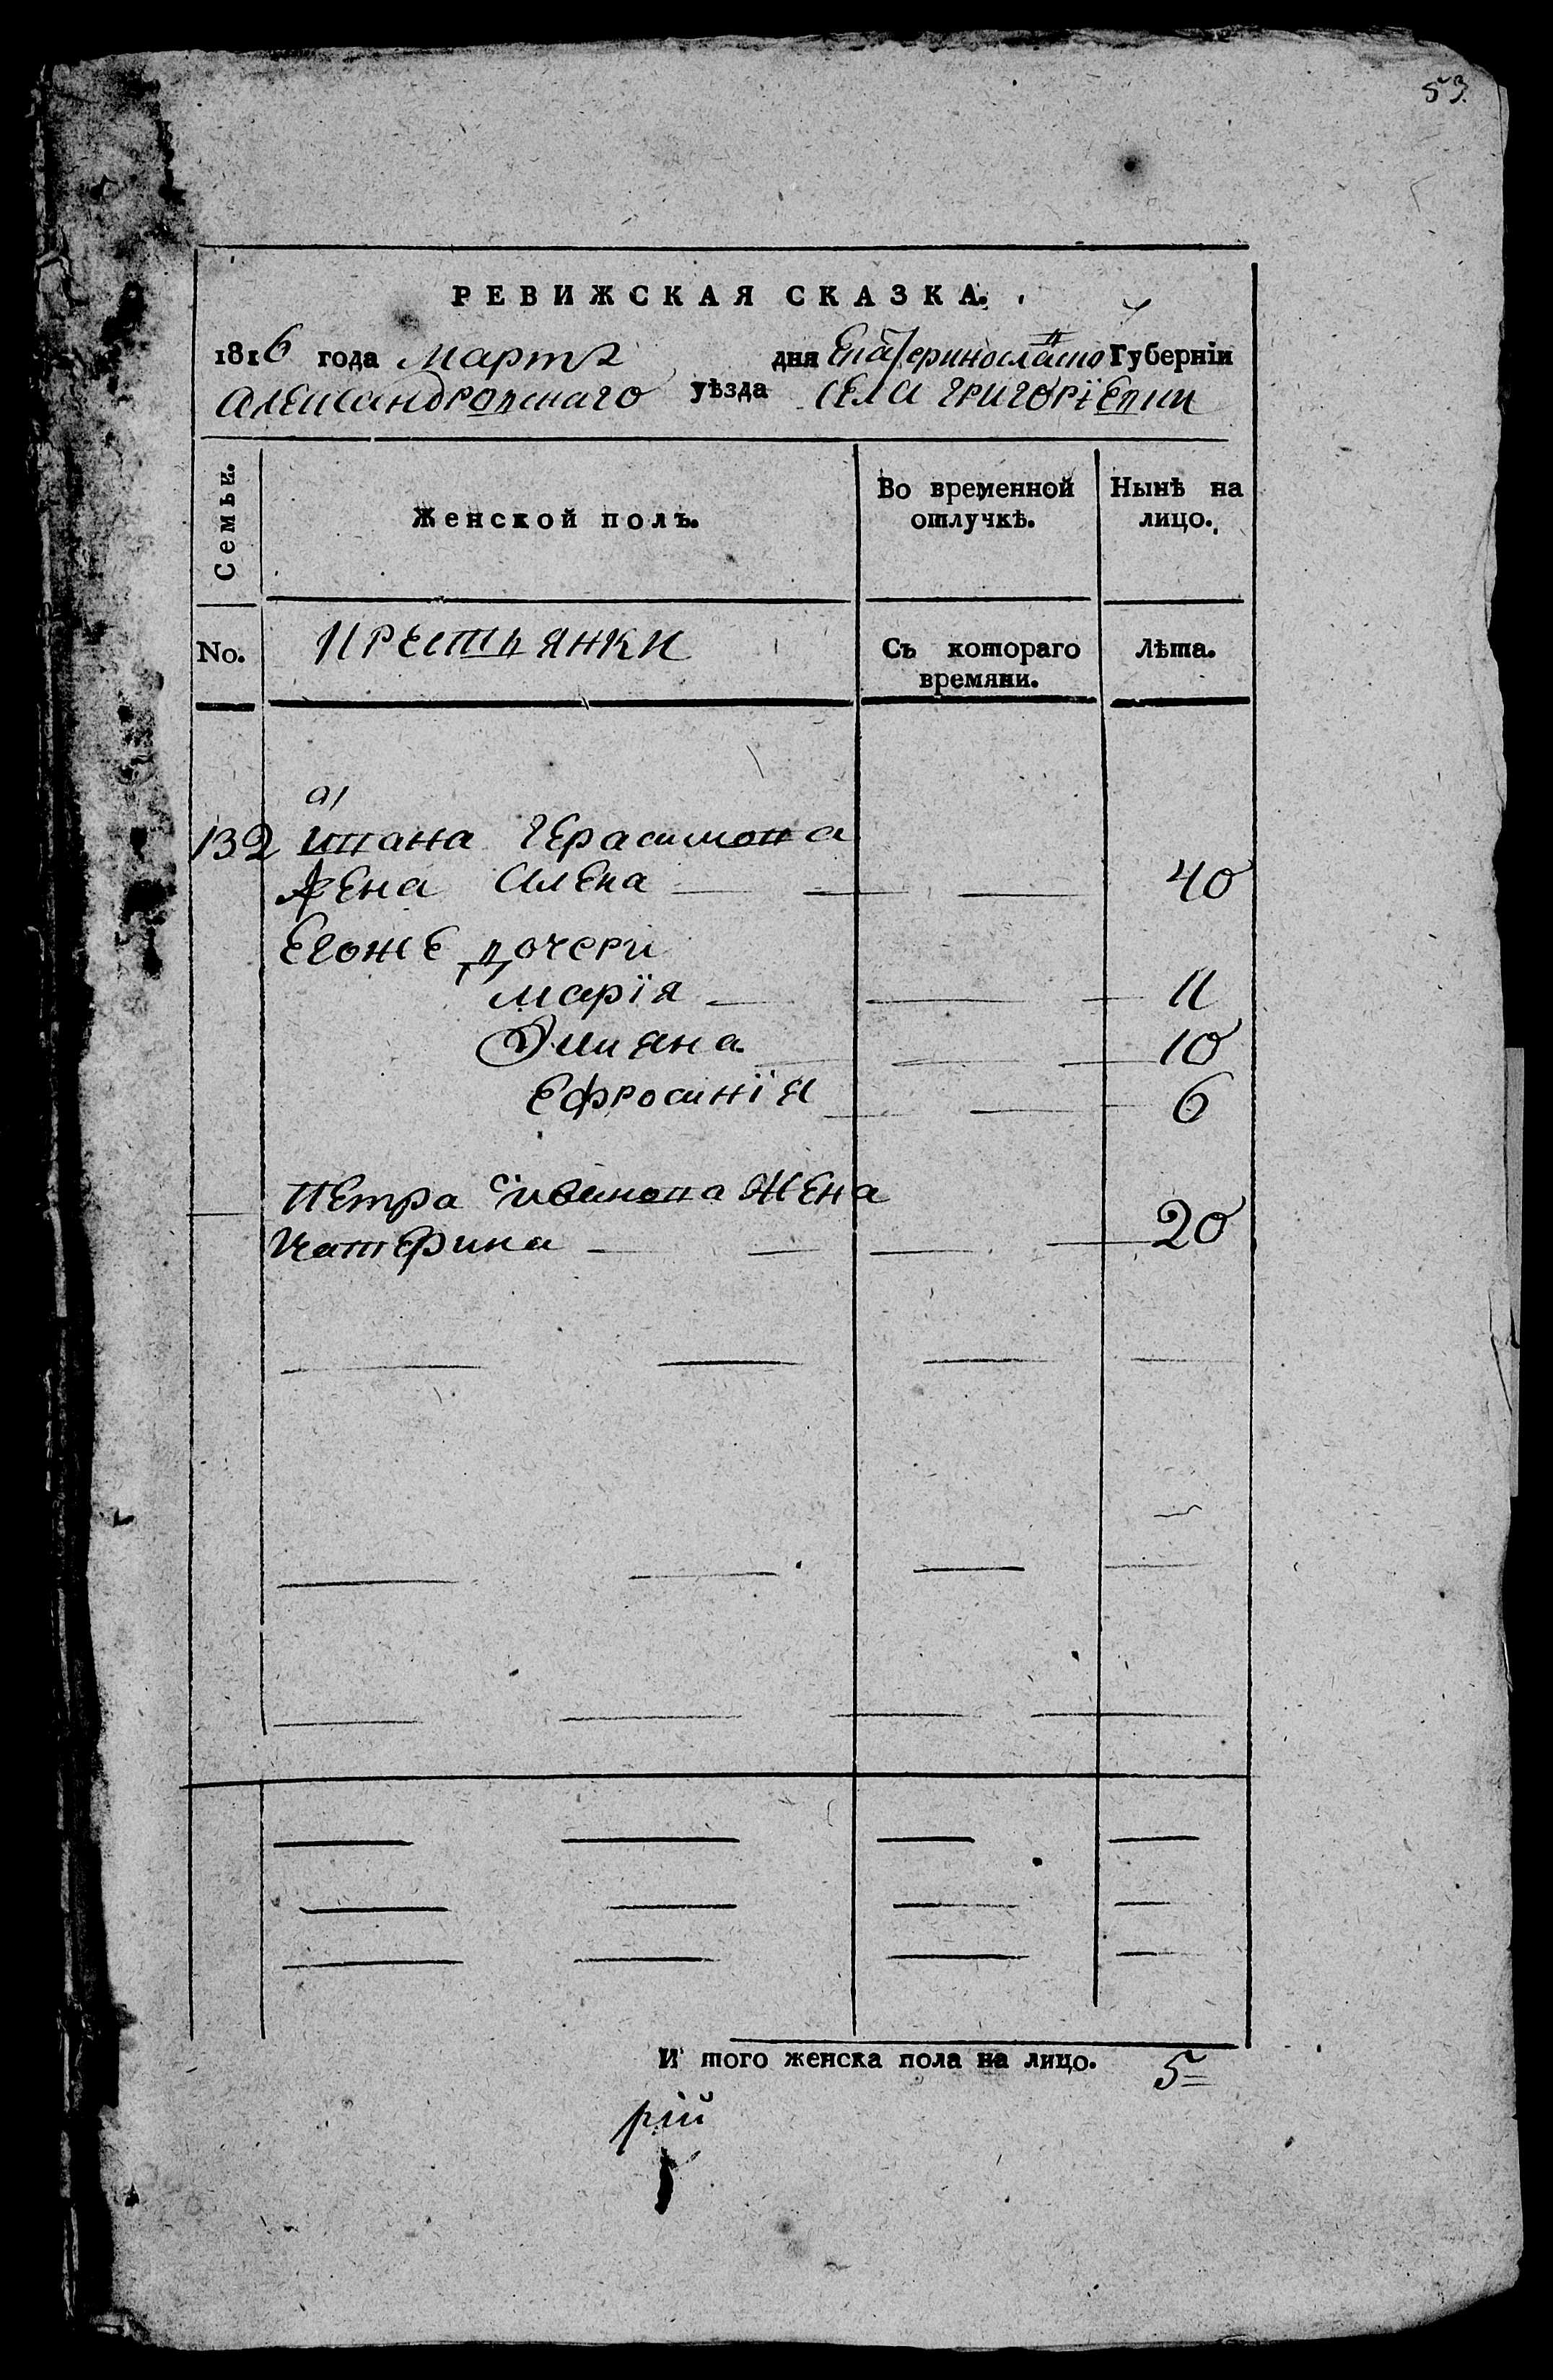 53.
РЕВИЖСКАЯ СКАЗКА.
1816 года марта дня Екатеринославской Губернїи
александровскаго уѣзда села григорїевки
Семьи.
Женской полъ.
Во временной отлучкѣ.
Нынѣ на лицо.
No.
крестьянки
Съ котораго времяни.
Лѣта.
а)
132 ивана Герасимова
жена алена 40
Егоже дочери
марїя 11
10
Ефросинїя 6
Петра жена
катерина 20
И того женска пола на лицо. 5
рїй